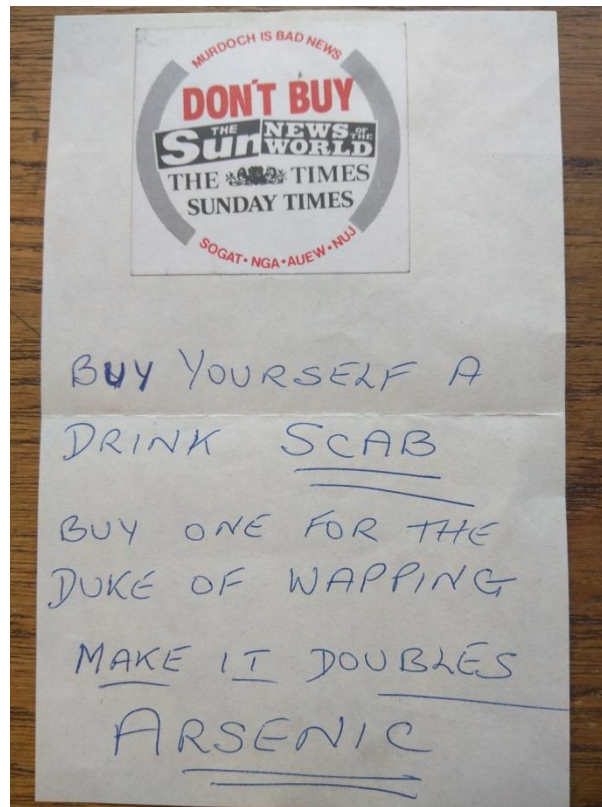 MURDOCH IS BAD NEWS
DON'T BUY
THE Sun NEWS OF THE WORLD
THE TIMES
SUNDAY TIMES
SOGAT • NGA • AUEW • NUJ
BUY YOURSELF A
DRINK SCAB
BUY ONE FOR THE
DUKE OF WAPPING
MAKE IT DOUBLES
ARSENIC